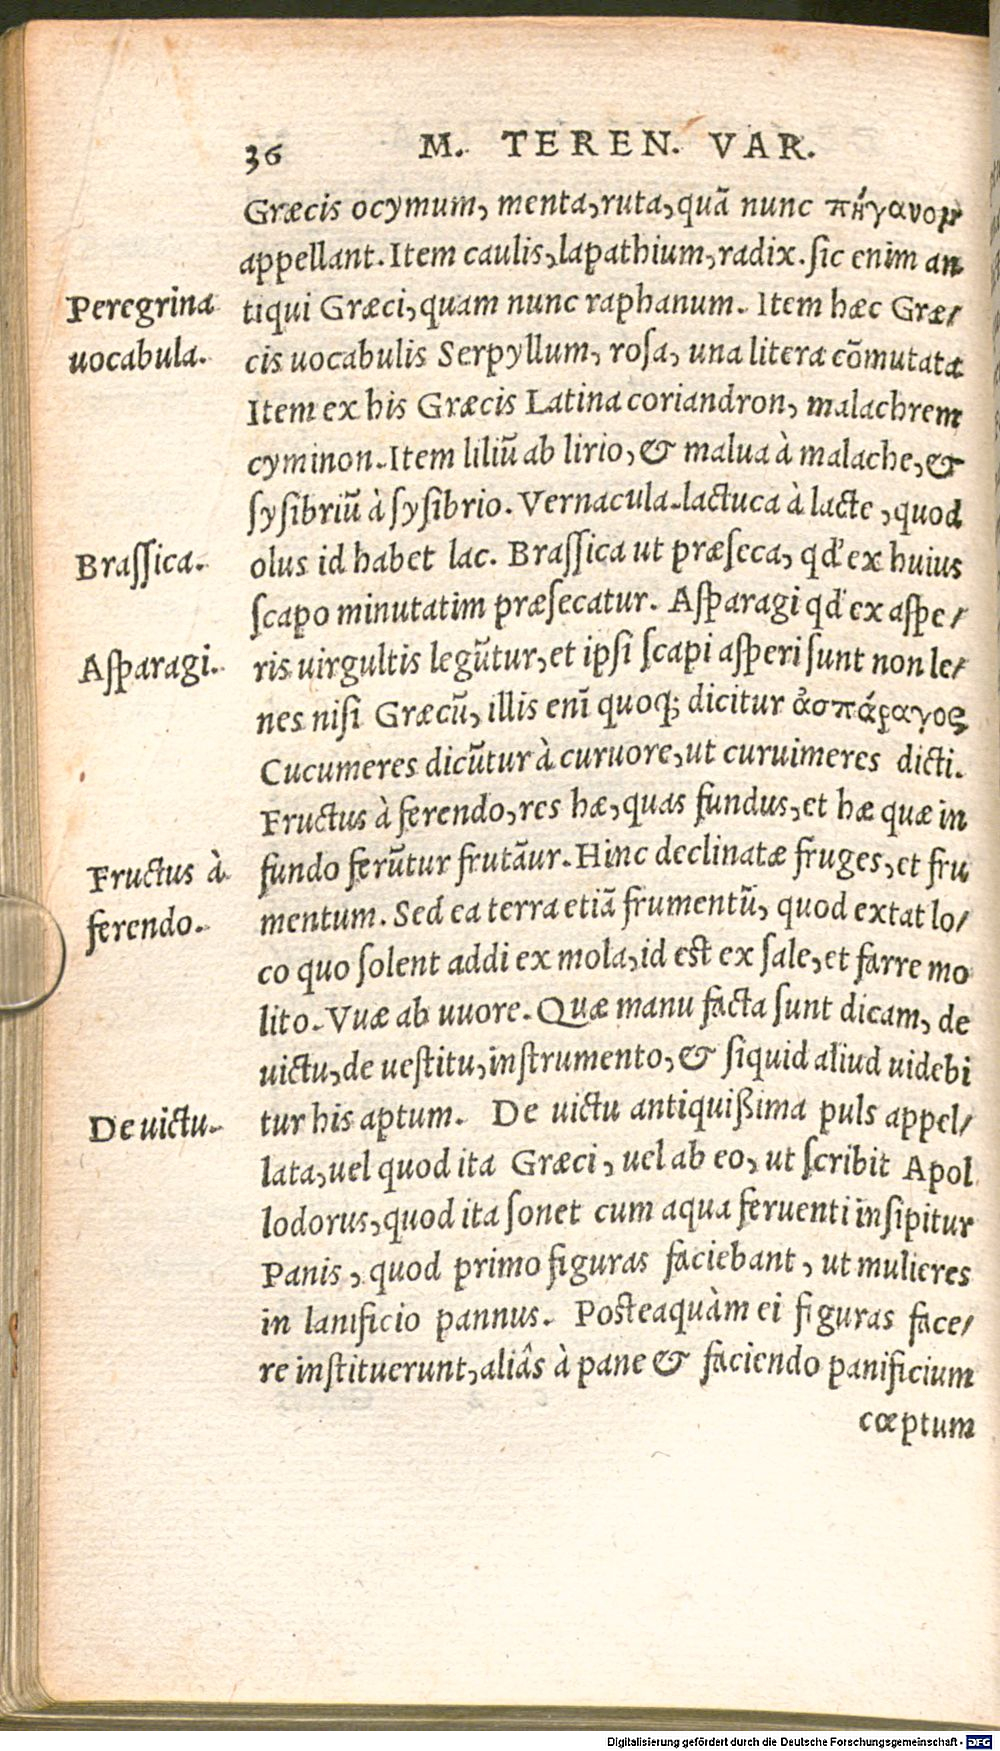 36 M. TEREN. VAR.
Græcis ocymum, menta, ruta, quã nunc πήγανομ
appellant. Item caulis, lapathium, radix. ſic enim an
Peregrina
tiqui Græci, quam nunc raphanum. Item hæc Græ/
uocabula.
cis uocabulis Serpyllum, roſa, una litera cõmutata
Item ex his Græcis Latina coriandron, malachrem
cyminon. Item liliũ ab lirio, & malua à malache, &
ſyſibriũ à ſyſibrio. Vernacula. lactuca à lacte, quod
Braſſica.
olus id habet lac. Braſſica ut præſeca, qd' ex huius
ſcapo minutatim præſecatur. Aſparagi qd' ex aſpe/
Aſparagi.
ris uirgultis legũtur, et ipſi ſcapi aſperi ſunt non le/
nes niſi Græcũ, illis enĩ quoq; dicitur ἀσπάραγος
Cucumeres dicũtur à curuore, ut curuimeres dicti.
Fructus à ferendo, res hæ, quas fundus, et hæ quæ in
Fructus à
fundo ferũtur frutãur. Hinc declinatæ fruges, et fru
ferendo.
mentum. Sed ea terra etiã frumentũ, quod extat lo/
co quo ſolent addi ex mola, id eſt ex ſale, et farre mo
lito. Vuæ ab uuore. Quæ manu facta ſunt dicam, de
uictu, de ueſtitu, inſtrumento, & ſiquid aliud uidebi
De uictu.
tur his aptum. De uictu antiquißima puls appel/
lata, uel quod ita Græci, uel ab eo, ut ſcribit Apol
lodorus, quod ita ſonet cum aqua feruenti inſipitur
Panis, quod primo figuras faciebant, ut mulieres
in lanificio pannus. Poſteaquàm ei figuras face/
re inſtituerunt, aliâs à pane & faciendo panificium
cœptum
Digitalisierung gefördert durch die Deutsche Forschungsgemeinschaft - DFG